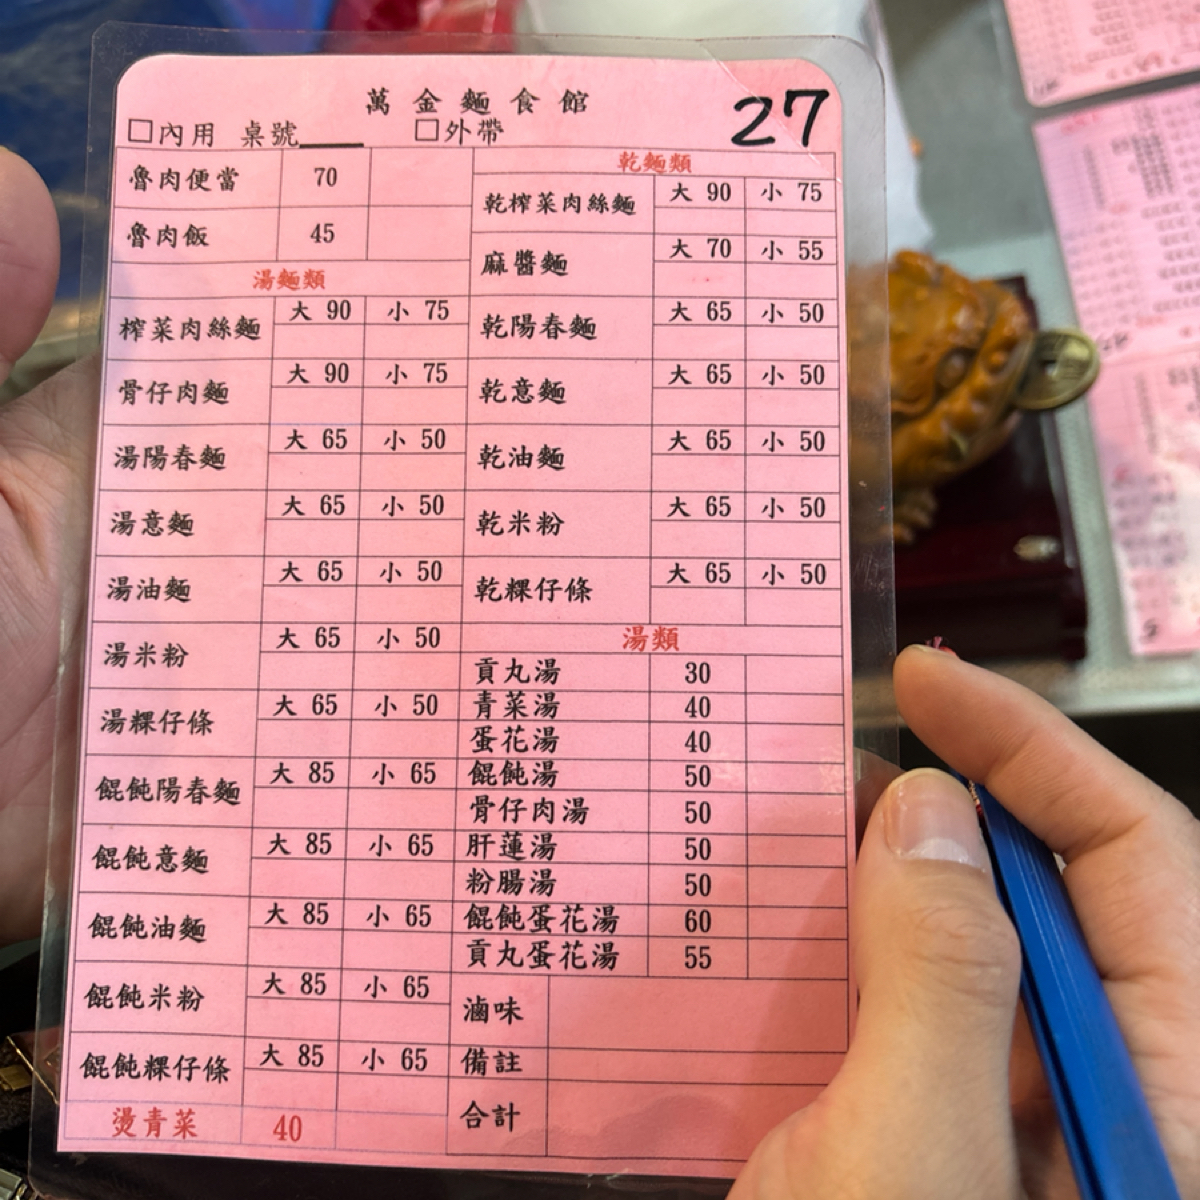 萬金麵食館
27
□內用 桌號____ □外帶
魯肉便當 70
魯肉飯 45
湯麵類
榨菜肉絲麵 大 90 小 75
骨仔肉麵 大 90 小 75
湯陽春麵 大 65 小 50
湯意麵 大 65 小 50
湯油麵 大 65 小 50
湯米粉 大 65 小 50
湯粿仔條 大 65 小 50
餛飩陽春麵 大 85 小 65
餛飩意麵 大 85 小 65
餛飩油麵 大 85 小 65
餛飩米粉 大 85 小 65
餛飩粿仔條 大 85 小 65
燙青菜 40
乾麵類
乾榨菜肉絲麵 大 90 小 75
麻醬麵 大 70 小 55
乾陽春麵 大 65 小 50
乾意麵 大 65 小 50
乾油麵 大 65 小 50
乾米粉 大 65 小 50
乾粿仔條 大 65 小 50
湯類
貢丸湯 30
青菜湯 40
蛋花湯 40
餛飩湯 50
骨仔肉湯 50
肝蓮湯 50
粉腸湯 50
餛飩蛋花湯 60
貢丸蛋花湯 55
滷味
備註
合計